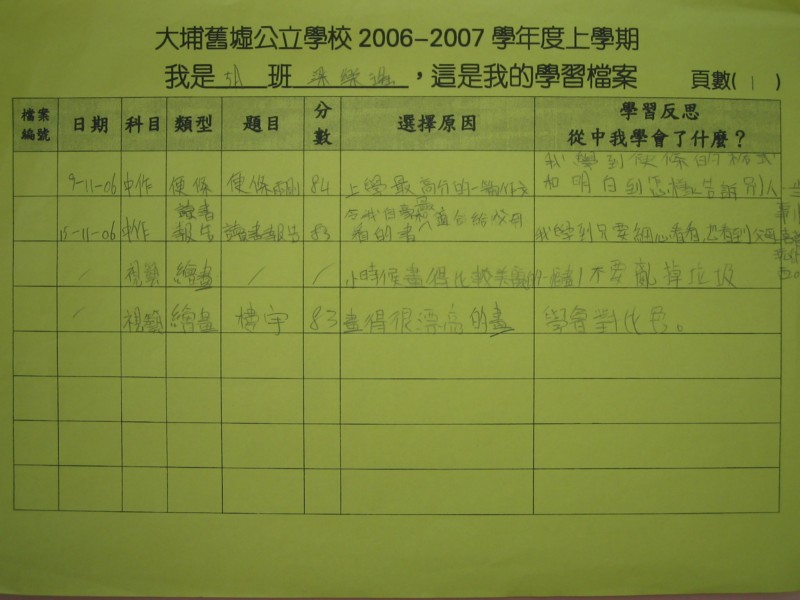 大埔舊墟公立學校 2006-2007 學年度上學期
我是 班 ，這是我的學習檔案 頁數( 1 )
檔案編號 日期 科目 類型 題目 分數 選擇原因 學習反思 從中我學會了什麼？
9-11-06 中作 便條 便條 84 上學最高分的一篇作文 我學到便條的格式和明白到怎樣告訴別人
15-11-06 中作 讀書報告 讀書報告 83 看的書 我學到只要細心看看
/ 視藝 繪畫 / / 小時候畫得比較美麗的 不要亂掉垃圾
/ 視藝 繪畫 樓宇 83 畫得很漂亮的畫 學會對比色。